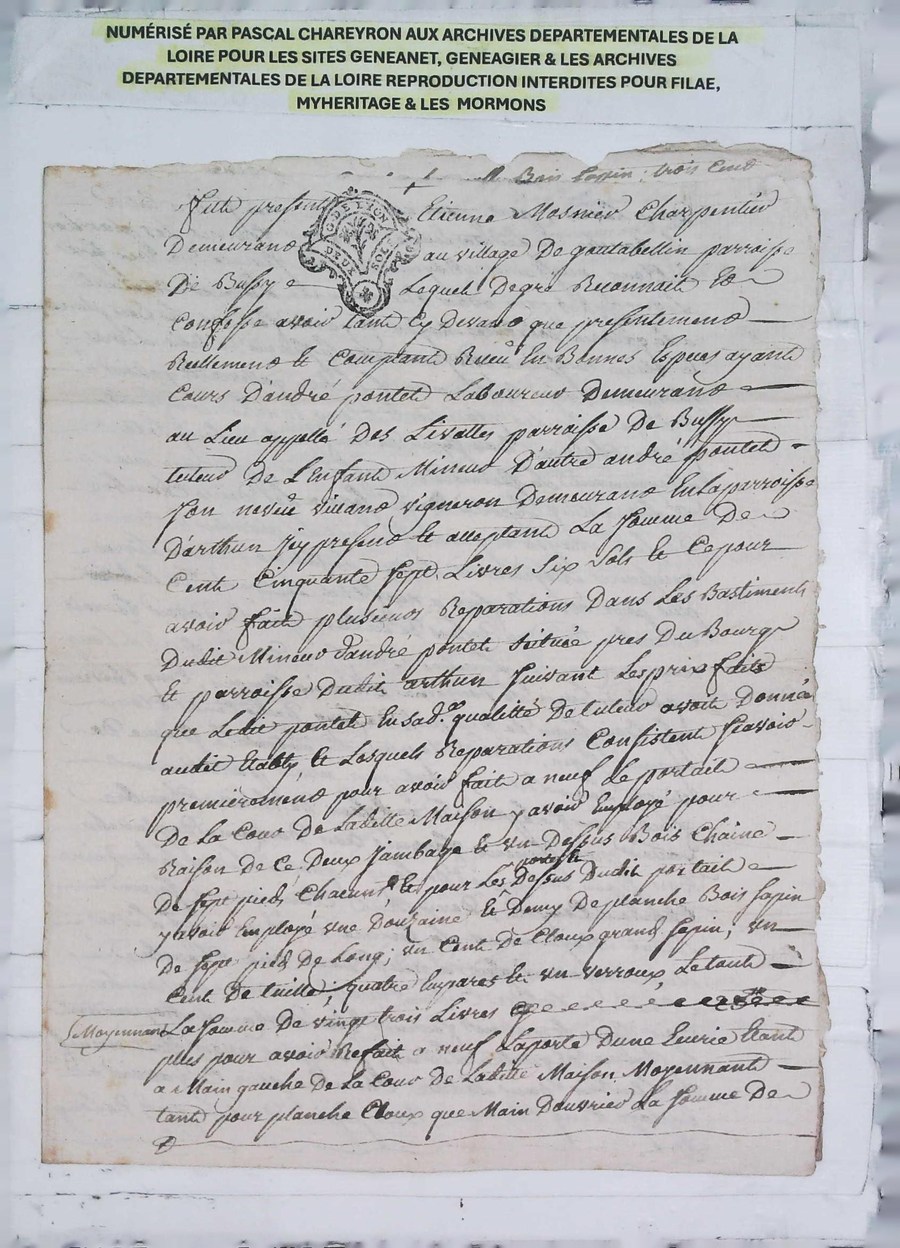 NUMÉRISÉ PAR PASCAL CHAREYRON AUX ARCHIVES DEPARTEMENTALES DE LA
LOIRE POUR LES SITES GENEANET, GENEAGIER & LES ARCHIVES
DEPARTEMENTALES DE LA LOIRE REPRODUCTION INTERDITES POUR FILAE,
MYHERITAGE & LES MORMONS
Bois sappin; trois Cent
fut present Etienne Mosnier Charpentier
G. DE LYON
DEUX SOLS
Demeurant au village De goutabellin parroisse
De Bussy Lequel De gré Reconnait Et
Confesse avoir tant Cy Devant que presentement
Reellement Et Comptant Receu En Bonnes Especes ayant
Cours D'andré pontet Laboureur Demeurant
au Lieu appellé Des Livattes parroisse De Bussy
tuteur De L'Enfant Mineur D'autre andré pontet
son neveu vivant vigneron Demeurant En La parroisse
D'arthun Icy present Et acceptant La somme De
Cent Cinquante sept Livres six sols Et Ce pour
avoir fait plusieurs Reparations Dans Les Bastiments
Dudit Mineur D'andré pontet située pres Du Bourg
Et parroisse Dudit arthun suivant Les prix faits
que Ledit pontet En sad. qualitté De tuteur avoit Donnée
audit Etably Et Lesquels Reparations Consistent scavoir
premierement pour avoir fait a neuf Le portail
De La Cour De Laditte Maison y avoir Employé pour
Raison De Ce Deux jambage Et un Dessus Bois Chaine
De sept pieds Chacuns Et pour Les Dessus Dudit portail
y avoir Employé une Douzaine Et Demy De planche Bois sapin
De sept pied De Long; un Cent De Cloux grand sapin; un
Cent De tuille; quatre Empares Et un verroux Le tout
Moyennant La somme De vingt trois Livres
plus pour avoir Refait a neuf La porte D'une Ecurie Etant
a Main gauche De La Cour De Laditte Maison Moyennant
tant pour planche Cloux que Main D'ouvrier La somme De